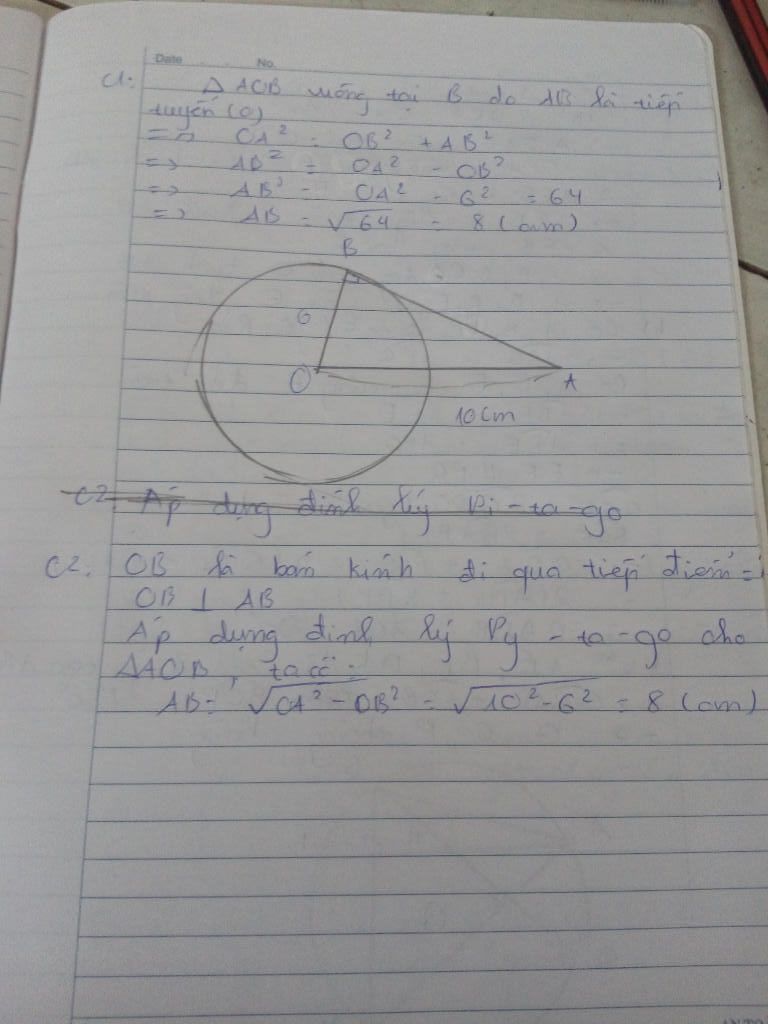 Date No.
C1: Δ AOB vuông tại B do AB là tiếp
tuyến (O)
=> OA² = OB² + AB²
=> AB² = OA² - OB²
=> AB² = OA² - 6² = 64
=> AB = √64 = 8 (cm)
B
6
O
A
10cm
C2. Áp dụng định lý Pi-ta-go
C2. OB là bán kính đi qua tiếp điểm =>
OB ⊥ AB
Áp dụng định lý Py-ta-go cho
ΔAOB, ta có:
AB = √OA² - OB² = √10² - 6² = 8 (cm)